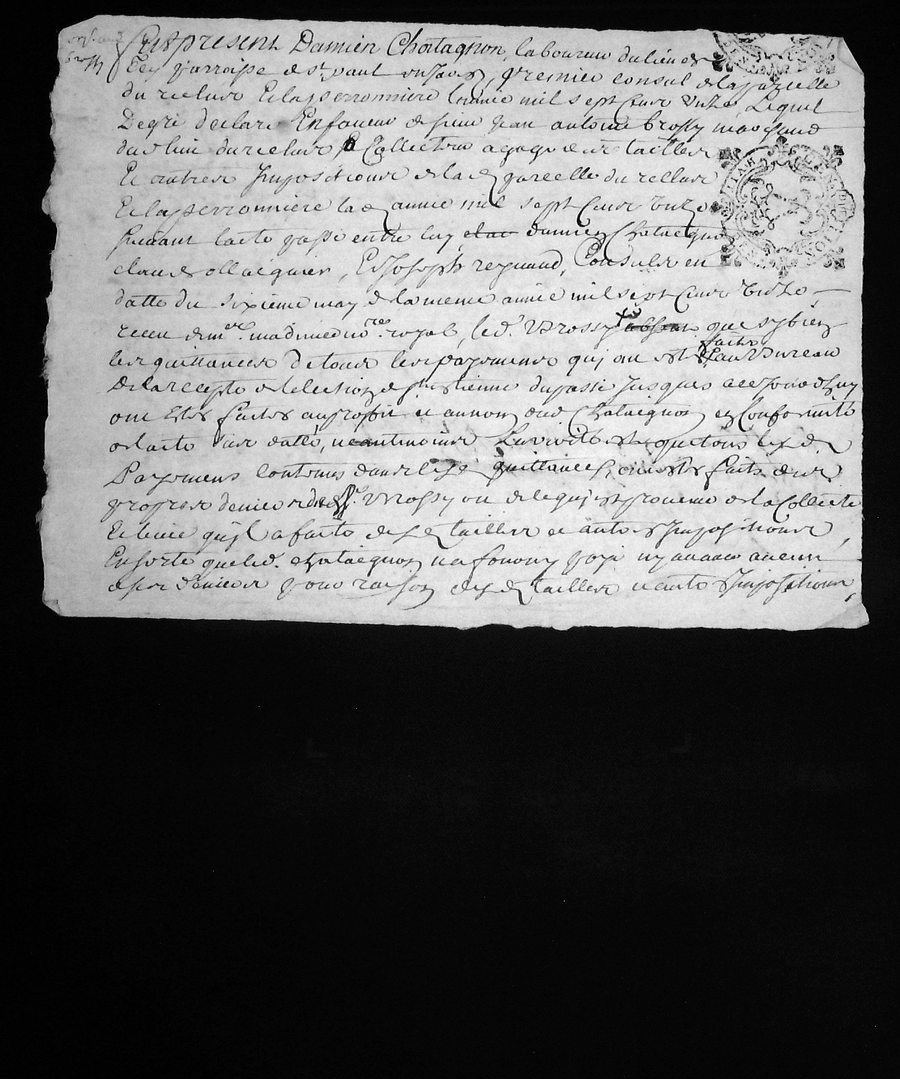 Fut present Damien Chatagnon, laboureur du lieu de
parroisse de st. paul en Jarez, premier consul de la parcelle
du reclus Et la perronniere lannée mil sept Cens unze Lequel
Degré declare En faveur de sieur Jean antoine brossy marchand
dud. lieu du reclus, Collecteur a gage des tailles
Et autres Impositions de lad. parcelle du reclus
Et la perronniere lad. année mil sept Cens unze
suivant lacte passé entre luy damien Chataignon
claude ollaignier, Et Joseph reynaud, Consuls en
datte du sixieme may de la meme année mil sept Cens unze
receu de me. no.re royal, led. Sr. Brossy que sy bien
les quittances de tous les payemens qui ont esté faits au Bureau
de la recepte de l'election de st. estienne du passé jusques a ce jourdhuy
ont esté faites au proffit et au nom dud. Chataignon en Conformité
de lacte sus datté, neantmoins la verité est que tous lesd.
payemens Contenus dans lesd. quittances, ont esté faits des
propres deniers dud. Sr. Brossy ou de ce qui est provenu de la Collecte
Et levée qu'il a faite desd. tailles et autres Impositions,
En sorte que led. Chataignon na fourny payé ny avancé aucun
de ses deniers pour raison desd. tailles et autres Impositions,